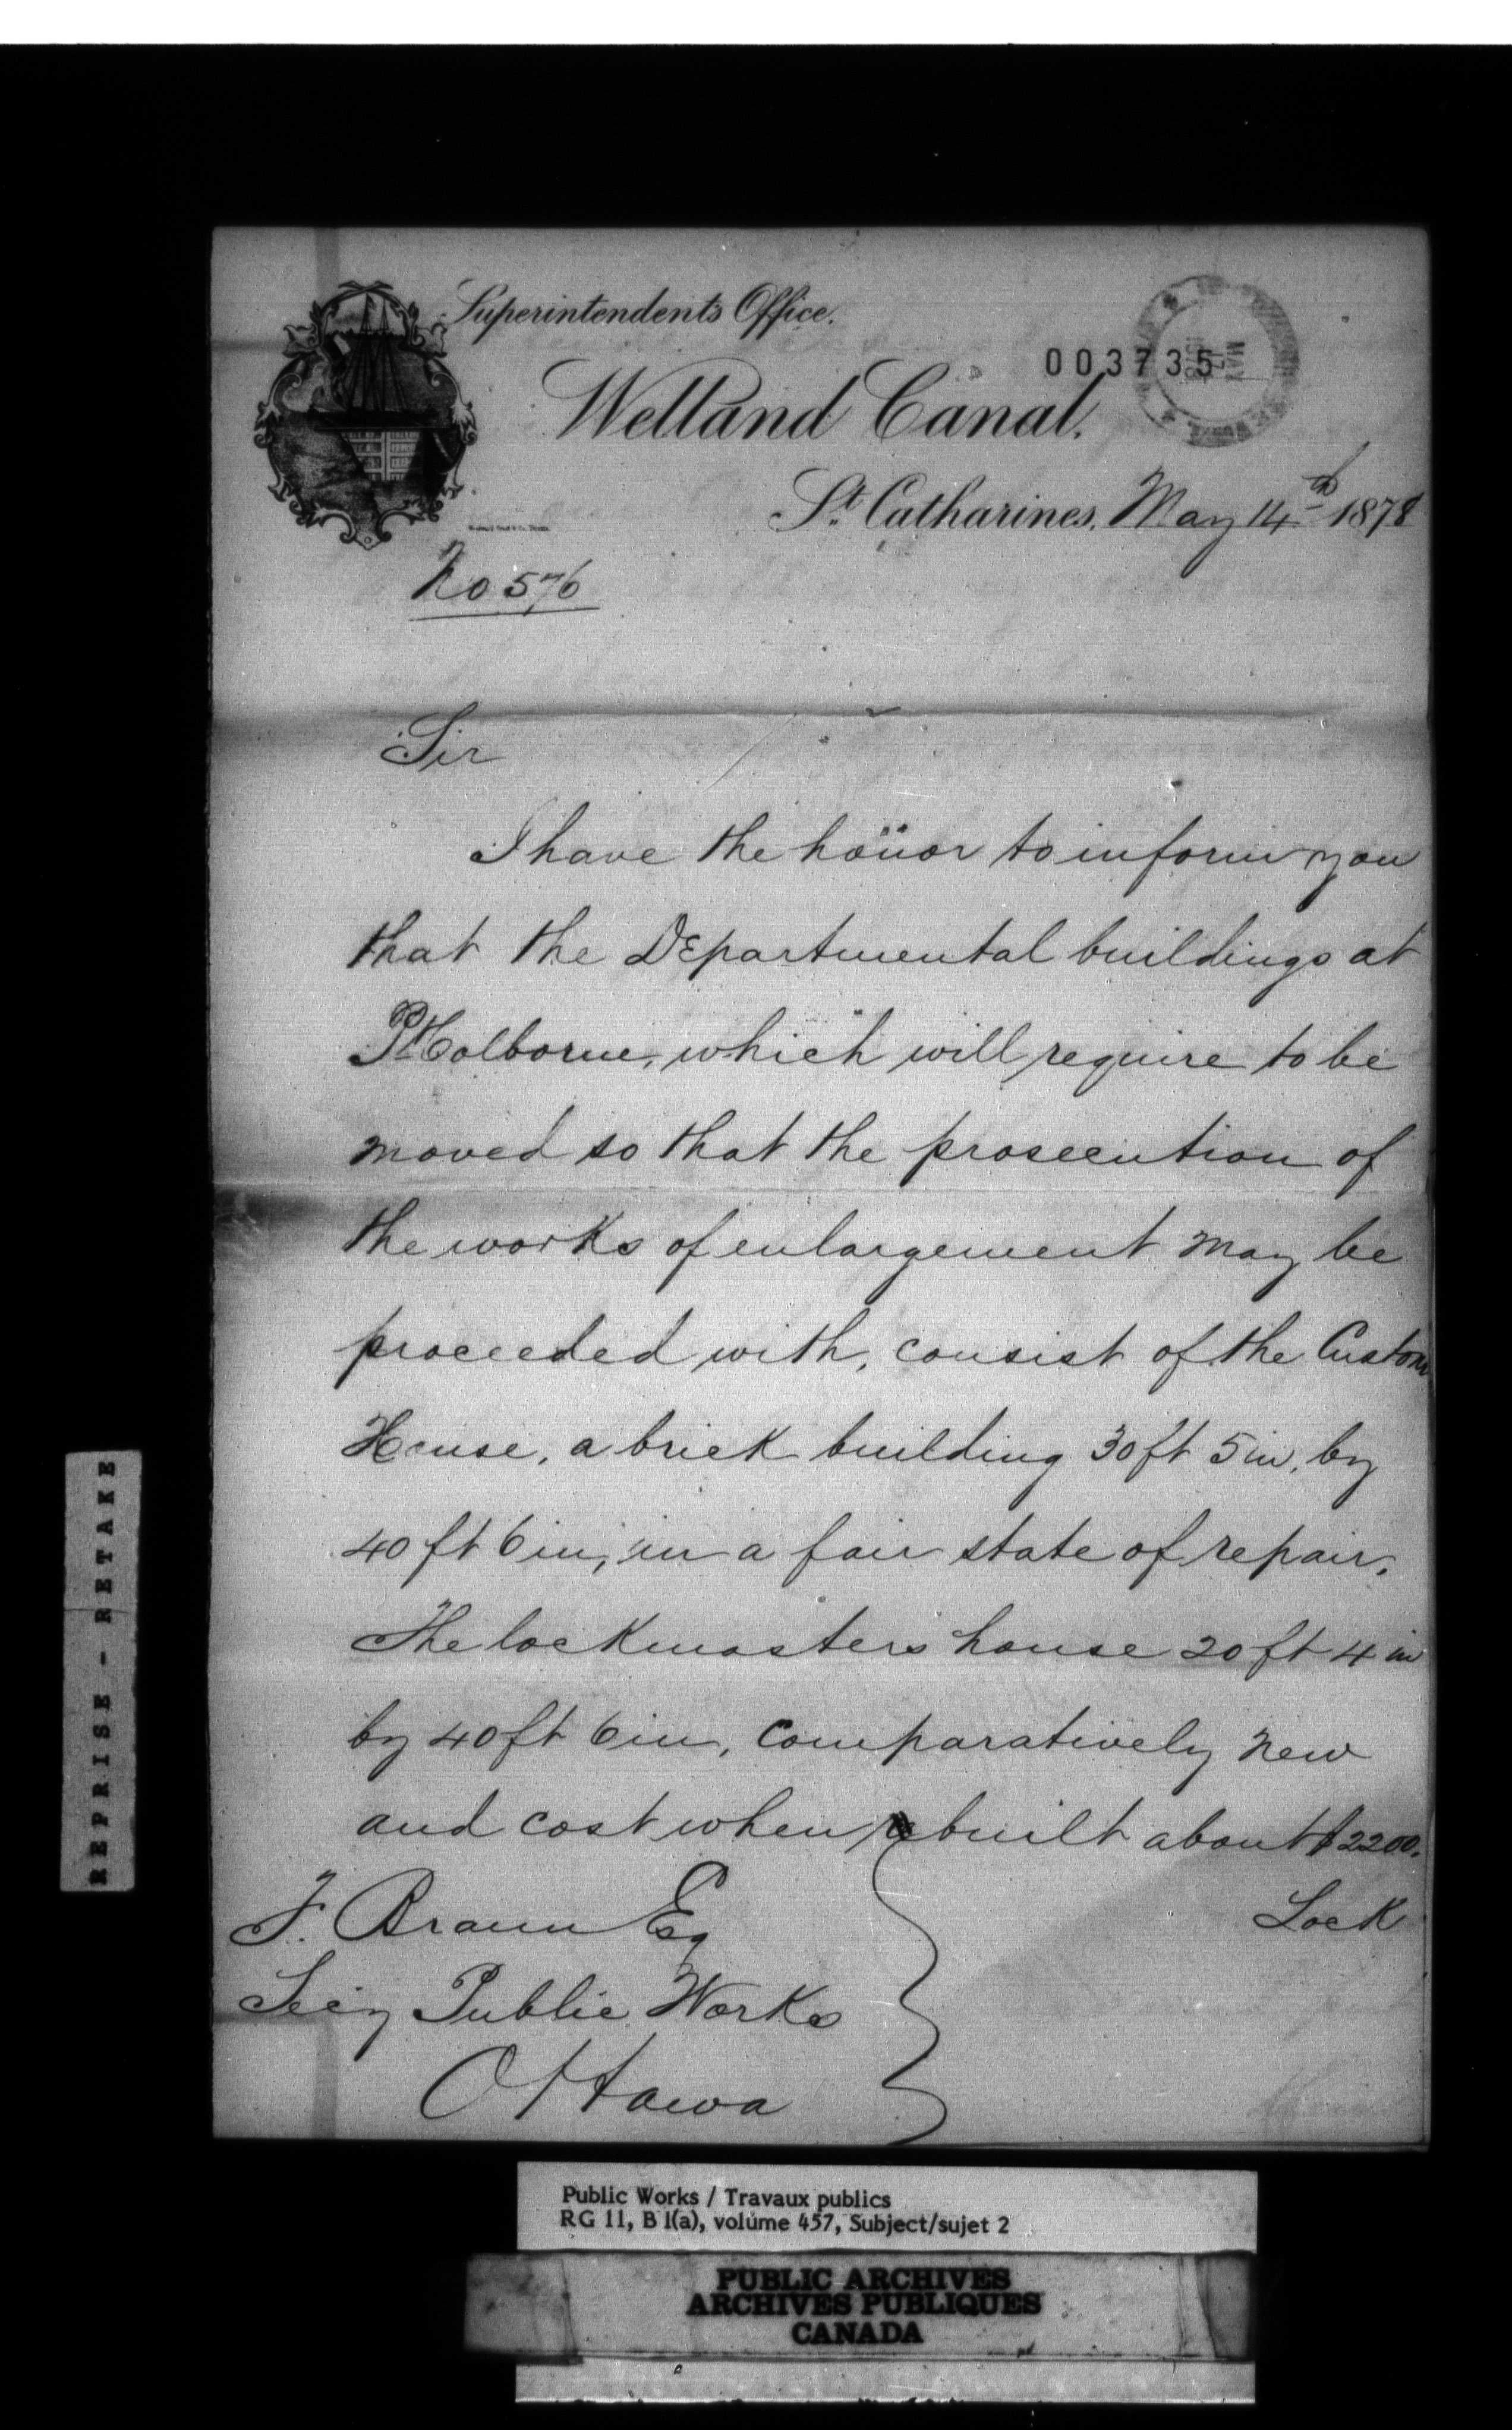 Superintendent's Office.
003735
MAY
17
1878
Welland Canal.
St. Catharines, May 14th 1878
No 576
Sir
I have the honor to inform you
that the Departmental buildings at
Pt Colborne, which will require to be
moved so that the prosecution of
the works of enlargement may be
proceeded with, consist of the Custom
House, a brick building 30 ft 5 in. by
40 ft 6 in, in a fair state of repair.
The lockmasters house 20 ft 4 in
by 40 ft 6 in, comparatively new
and cost when built about $2200.
Lock
F. Braun Esq
Secy Public Works
Ottawa
REPRISE - RETAKE
Public Works / Travaux publics
RG 11, B 1(a), volume 457, Subject/sujet 2
PUBLIC ARCHIVES
ARCHIVES PUBLIQUES
CANADA